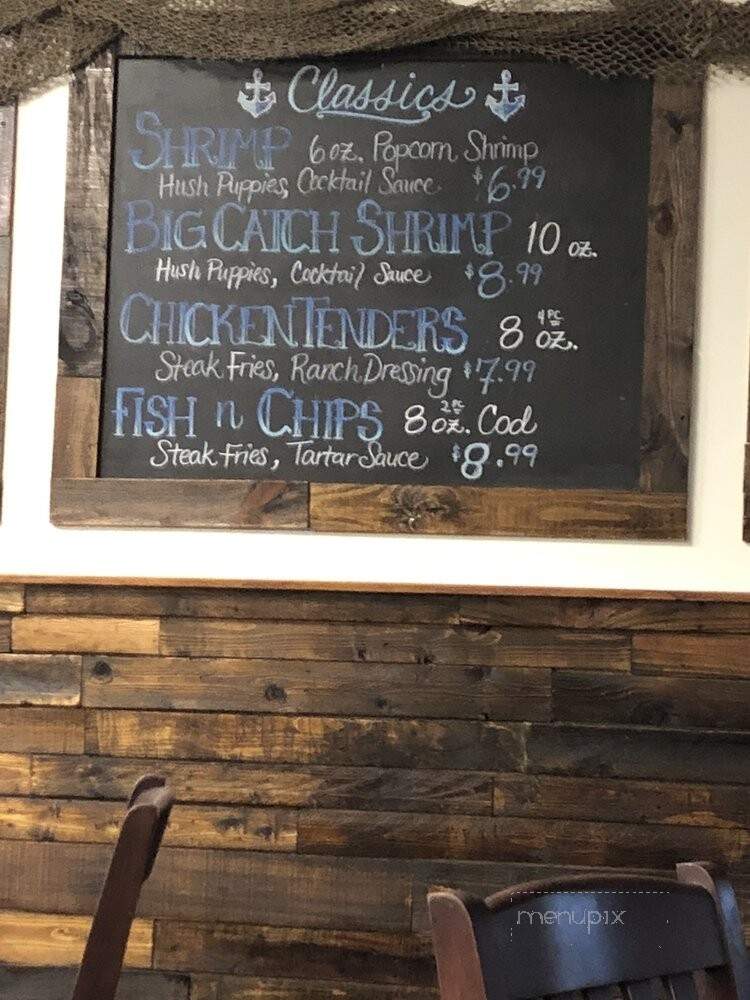 Classics
SHRIMP 6 oz. Popcorn Shrimp
Hush Puppies, Cocktail Sauce $6.99
BIG CATCH SHRIMP 10 oz.
Hush Puppies, Cocktail Sauce $8.99
CHICKEN TENDERS 8 oz. 4 PC
Steak Fries, Ranch Dressing $7.99
FISH n CHIPS 8 oz. 2 PC Cod
Steak Fries, Tartar Sauce $8.99
menupix